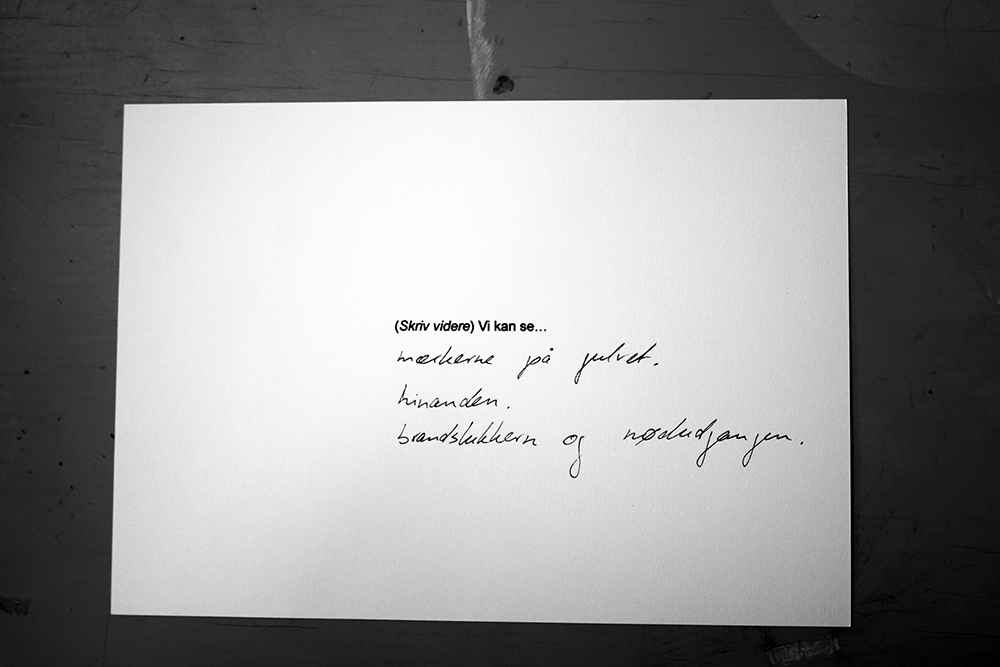 (Skriv videre) Vi kan se...
mærkerne på gulvet.
hinanden.
brandslukkern og nødudgangen.